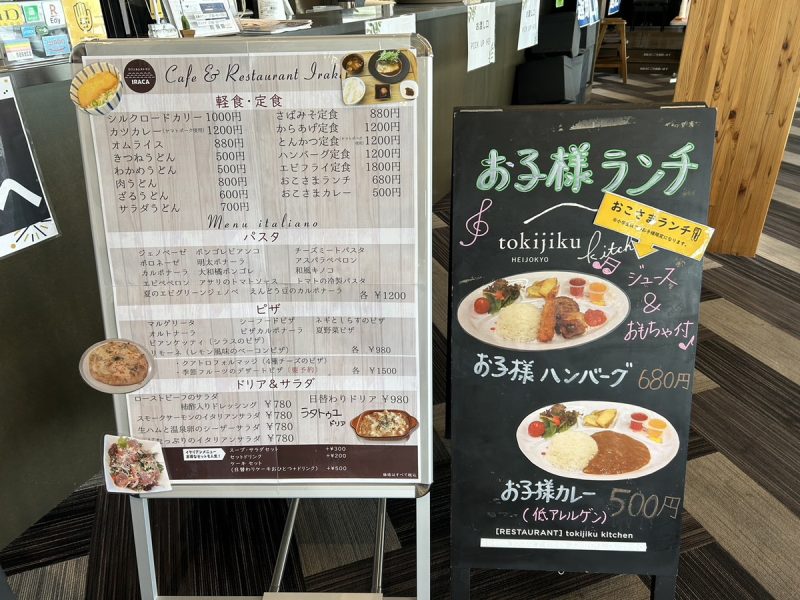 PICK UP HERE
R
Edy
IRACA
Cafe & Restaurant Iraka
軽食・定食
シルクロードカリー 1000円
カツカレー(ヤマトポーク使用) 1200円
オムライス 880円
きつねうどん 500円
わかめうどん 500円
肉うどん 800円
ざるうどん 600円
サラダうどん 700円
さばみそ定食 880円
からあげ定食 1200円
とんかつ定食(ヤマトポーク使用) 1200円
ハンバーグ定食 1200円
エビフライ定食 1800円
おこさまランチ 680円
おこさまカレー 500円
Menu italiano
パスタ
ジェノベーゼ ボンゴレビアンコ チーズミートパスタ
ボロネーゼ 明太ボナーラ アスパラペペロン
カルボナーラ 大和橘ボンゴレ 和風キノコ
エビペペロン アサリのトマトソース トマトの冷製パスタ
夏のエビグリーンジェノベ えんどう豆のカルボナーラ 各 ¥1200
ピザ
マルゲリータ シーフードピザ ネギとしらすのピザ
オルトナーラ ピザカルボナーラ 夏野菜ピザ
ビアンケッティ(シラスのピザ)
リモーネ(レモン風味のベーコンピザ) 各 ¥980
・クアトロフォルマッジ(4種チーズのピザ)
・季節フルーツのデザートピザ(要予約) 各 ¥1500
ドリア&サラダ
ローストビーフのサラダ
柿酢入りドレッシング ¥780
スモークサーモンのイタリアンサラダ ¥780
生ハムと温泉卵のシーザーサラダ ¥780
たっぷりのイタリアンサラダ ¥780
日替わりドリア ¥980
ラタトゥユ
ドリア
イタリアンメニュー
お得なセットも人気!
スープ・サラダセット +¥300
セットドリンク +¥200
ケーキ セット
(日替わりケーキおひとつ+ドリンク) +¥500
価格はすべて税込
お子様ランチ
おこさまランチ
tokijiku
kitchen
HEIJOKYO
ジュース
&
おもちゃ付
お子様 ハンバーグ 680円
お子様カレー 500円
(低アレルゲン)
[RESTAURANT] tokijiku kitchen